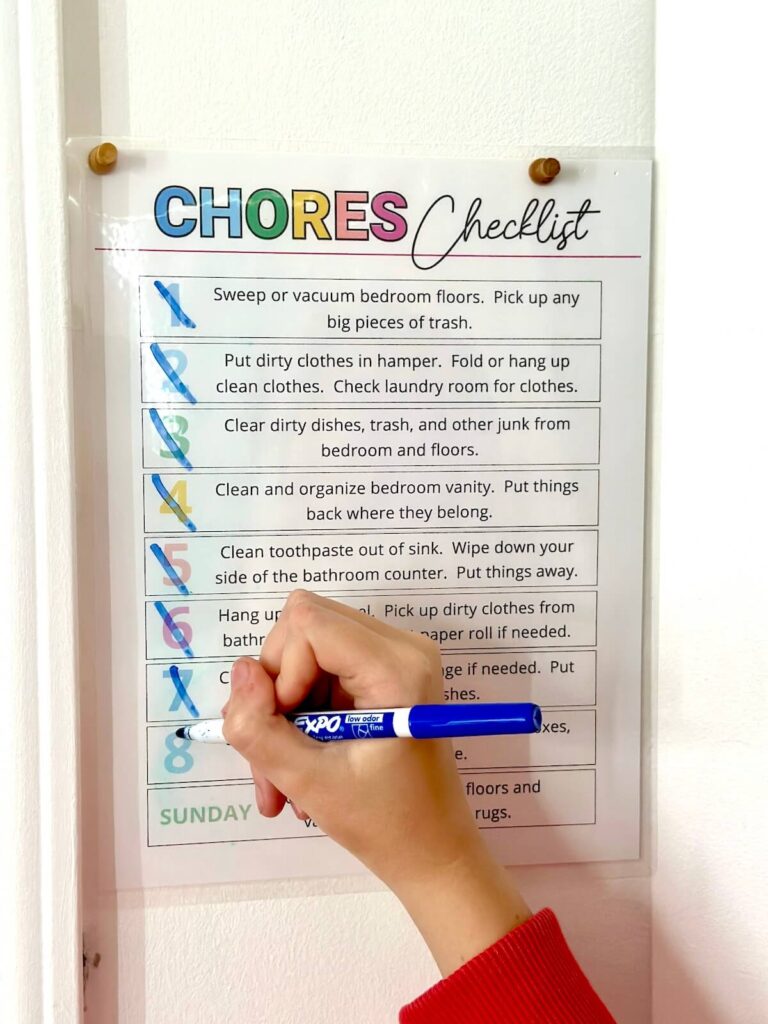 CHORES Checklist
1 Sweep or vacuum bedroom floors. Pick up any
big pieces of trash.
2 Put dirty clothes in hamper. Fold or hang up
clean clothes. Check laundry room for clothes.
3 Clear dirty dishes, trash, and other junk from
bedroom and floors.
4 Clean and organize bedroom vanity. Put things
back where they belong.
5 Clean toothpaste out of sink. Wipe down your
side of the bathroom counter. Put things away.
6 Hang up Pick up dirty clothes from
paper roll if needed.
7 if needed. Put
8
EXPO low odor
fine
SUNDAY floors and
rugs.